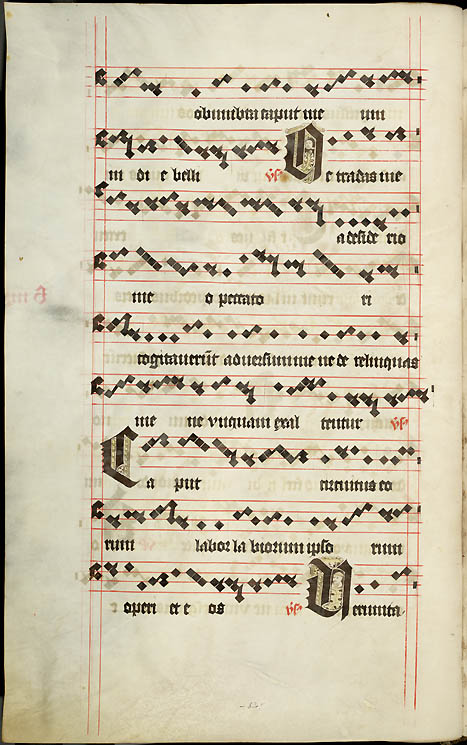 obumbra caput me um
in di e belli ℣ Ne tradas me
a deside rio
me o peccato ri
cogitaverūt adversum me ne de relinquas
me ne vnquam exal tentur ℣
Caput circuitus eo
rum labor labiorum ipso rum
operi et e os ℣ Verumta